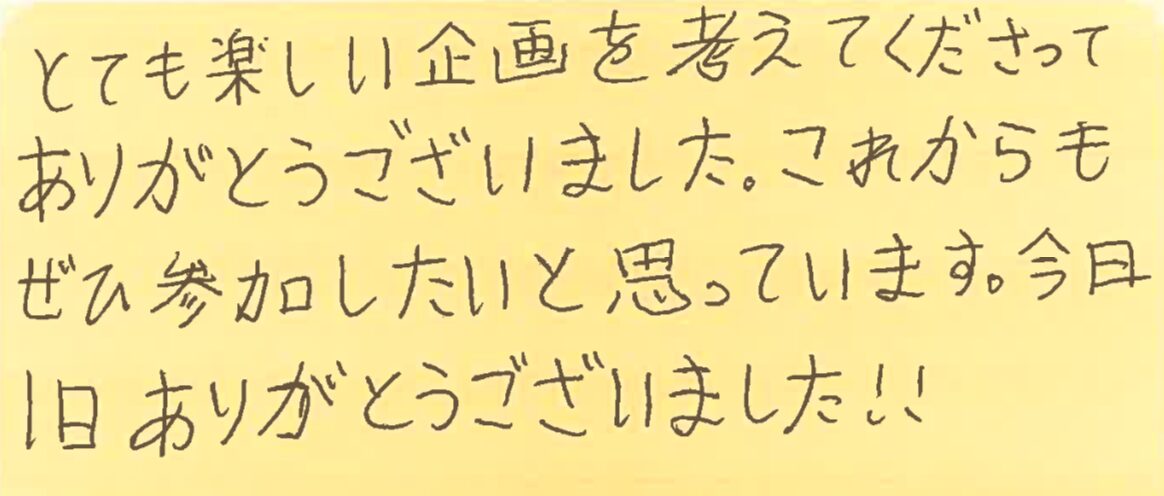 とても楽しい企画を考えてくださって
ありがとうございました。これからも
ぜひ参加したいと思っています。今日
1日ありがとうございました!!